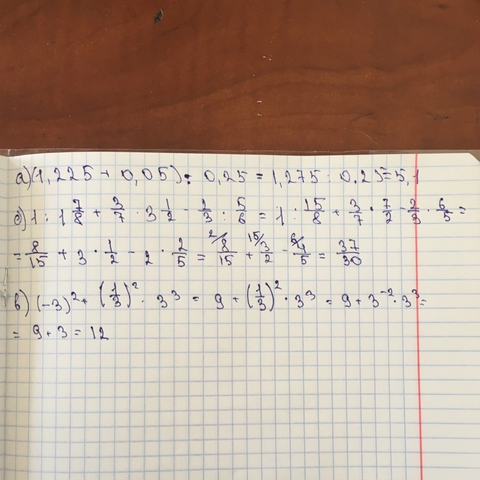 а) (1,225 + 0,05) : 0,25 = 1,275 : 0.25 = 5,1
б) 1 : 1 7/8 + 3/7 · 3 1/2 - 2/3 : 5/6 = 1 : 15/8 + 3/7 · 7/2 - 2/3 · 6/5 =
= 8/15 + 3 · 1/2 - 2 · 2/5 = 2/ 8/15 + 15/ 3/2 - 6/ 4/5 = 37/30
в) (-3)² + (1/3)² · 3³ = 9 + (1/3)² · 3³ = 9 + 3⁻² · 3³ =
= 9 + 3 = 12